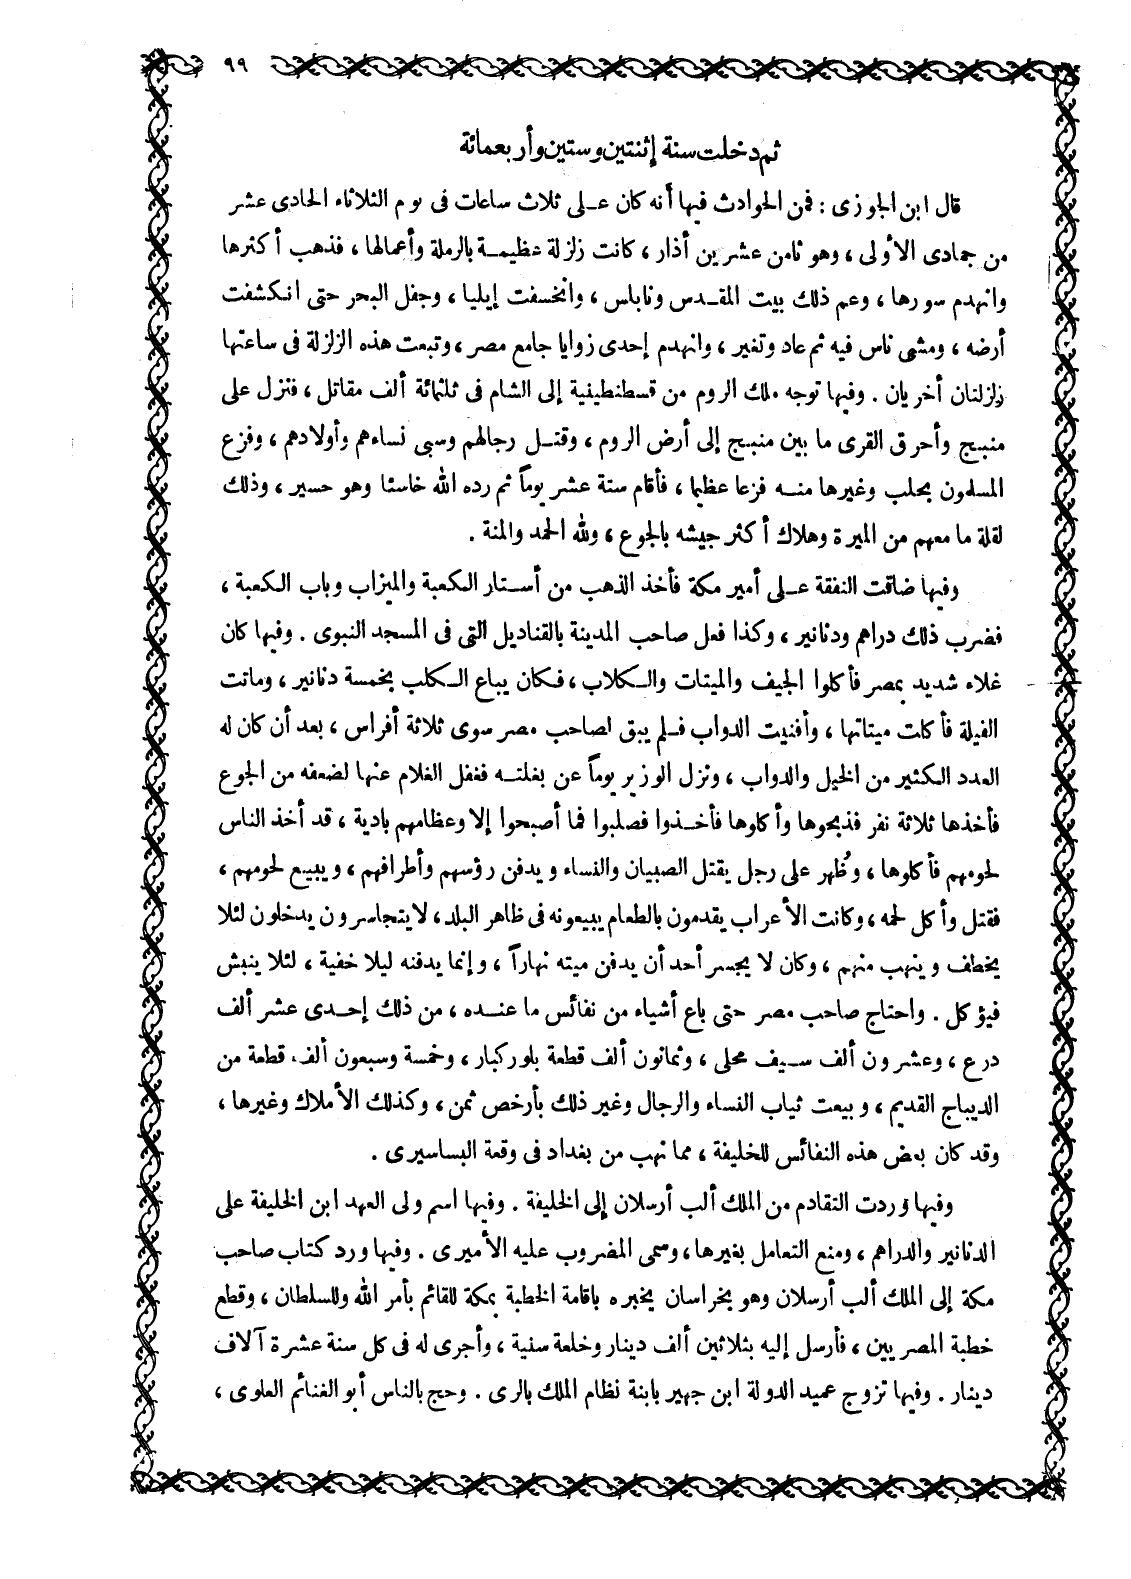 ٩٩
ثم دخلت سنة إثنتين وستين وأربعمائة
قال ابن الجوزى : فمن الحوادث فيها أنه كان على ثلاث ساعات فى يوم الثلاثاء الحادى عشر
من جمادى الأولى ، وهو ثامن عشرين أذار ، كانت زلزلة عظيمة بالرملة وأعمالها ، فذهب أكثرها
وانهدم سورها ، وعم ذلك بيت المقدس ونابلس ، وانخسفت إيليا ، وجفل البحر حتى انكشفت
أرضه ، ومشى ناس فيه ثم عاد وتغير ، وانهدم إحدى زوايا جامع مصر ، وتبعت هذه الزلزلة فى ساعتها
زلزلتان أخريان . وفيها توجه ملك الروم من قسطنطيفية إلى الشام فى ثلثمائة ألف مقاتل ، فنزل على
منبج وأحرق القرى ما بين منبج إلى أرض الروم ، وقتل رجالهم وسبى نساءهم وأولادهم ، وفزع
المسلمون بحلب وغيرها منه فزعا عظيما ، فأقام ستة عشر يوماً ثم رده الله خاسئا وهو حسير ، وذلك
لقلة ما معهم من الميرة وهلاك أكثر جيشه بالجوع ، ولله الحمد والمنة .
وفيها ضاقت النفقة على أمير مكة فأخذ الذهب من أستار الكعبة والميزاب وباب الكعبة ،
فضرب ذلك دراهم ودنانير ، وكذا فعل صاحب المدينة بالقناديل التى فى المسجد النبوى . وفيها كان
غلاء شديد بمصر فأكلوا الجيف والميتات والكلاب ، فكان يباع الكلب بخمسة دنانير ، وماتت
الفيلة فأكلت ميتاتها ، وأفنيت الدواب فلم يبق لصاحب مصر سوى ثلاثة أفراس ، بعد أن كان له
العدد الكثير من الخيل والدواب ، ونزل الوزير يوماً عن بغلته فغفل الغلام عنها لضعفه من الجوع
فأخذها ثلاثة نفر فذبحوها وأكلوها فأخذوا فصلبوا فما أصبحوا إلا وعظامهم بادية ، قد أخذ الناس
لحومهم فأكلوها ، وظُهر على رجل يقتل الصبيان والنساء ويدفن رؤسهم وأطرافهم ، ويبيع لحومهم ،
فقتل وأكل لحمه ، وكانت الأعراب يقدمون بالطعام يبيعونه فى ظاهر البلد ، لا يتجاسرون يدخلون لئلا
يخطف وينهب منهم ، وكان لا يجسر أحد أن يدفن ميته نهاراً ، وإنما يدفنه ليلا خفية ، لئلا ينبش
فيؤكل . واحتاج صاحب مصر حتى باع أشياء من نفائس ما عنده ، من ذلك إحدى عشر ألف
درع ، وعشرون ألف سيف محلى ، وثمانون ألف قطعة بلور كبار ، وخمسة وسبعون ألف قطعة من
الديباج القديم ، وبيعت ثياب النساء والرجال وغير ذلك بأرخص ثمن ، وكذلك الأملاك وغيرها ،
وقد كان بعض هذه النفائس للخليفة ، مما نهب من بغداد فى وقعة البساسيرى .
وفيها وردت التقادم من الملك ألب أرسلان إلى الخليفة . وفيها اسم ولى العهد ابن الخليفة على
الدنانير والدراهم ، ومنع التعامل بغيرها ، وسمى المضروب عليه الأميرى . وفيها ورد كتاب صاحب
مكة إلى الملك ألب أرسلان وهو بخراسان يخبره باقامة الخطبة بمكة للقائم بأمر الله وللسلطان ، وقطع
خطبة المصريين ، فأرسل إليه بثلاثين ألف دينار وخلعة سنية ، وأجرى له فى كل سنة عشرة آلاف
دينار . وفيها تزوج عميد الدولة ابن جهير بابنة نظام الملك بالرى . وحج بالناس أبو الغنائم العلوى ،